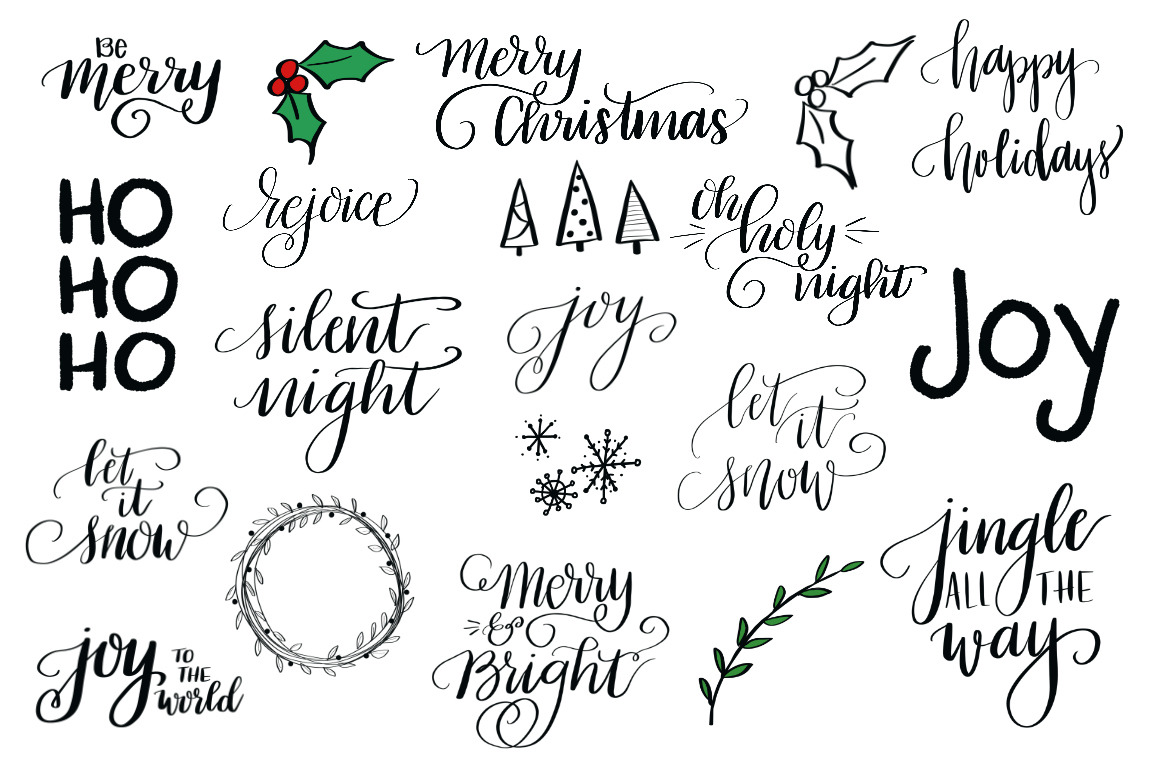 Be
merry
Merry
Christmas
happy
holidays
HO
HO
HO
rejoice
oh
holy
night
silent
night
joy
Joy
let
it
snow
let
it
snow
jingle
ALL THE
way
Merry
&
Bright
joy TO
THE
world